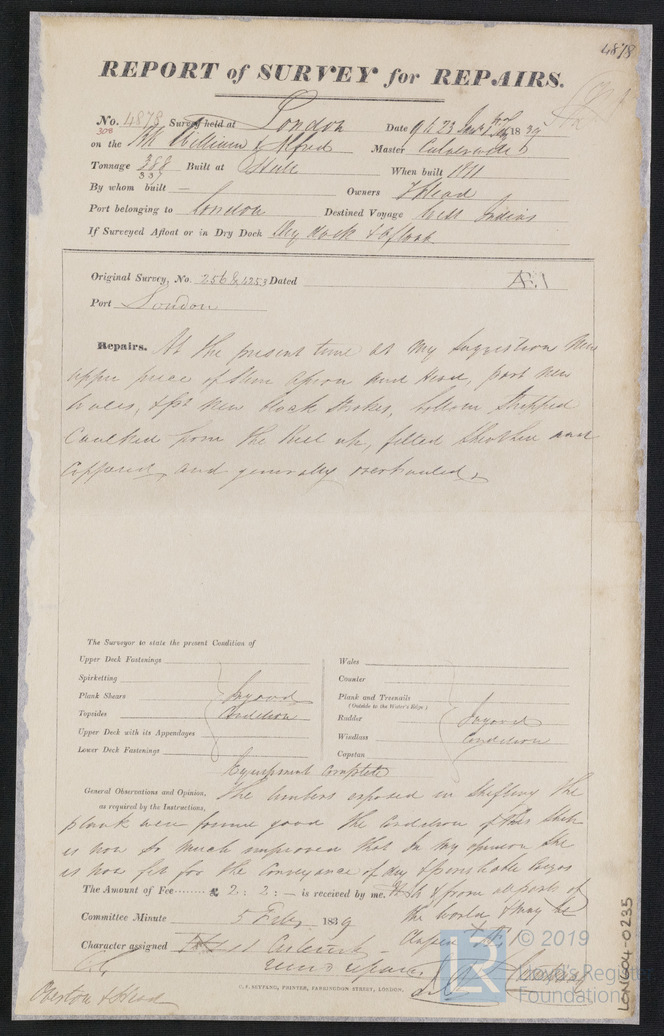 4878
REPORT of SURVEY for REPAIRS.
No. 4878 Survey held at London Date 9 & 23 1839
308
on the William & Alfred Master
Tonnage 388 Built at Hull When built 1811
337
By whom built — Owners Head
Port belonging to London Destined Voyage West Indies
If Surveyed Afloat or in Dry Dock Dry dock & afloat
Original Survey, No. 256 & 4253 Dated Æ 1
Port London
Repairs. At the present time at my suggestion New
upper piece of Stem apron and Head, part new
Wales, & new black strakes, bottom Stripped
Caulked from the Keel up, felted Sheathed and
Coppered, and generally overhauled
The Surveyor to state the present Condition of
Upper Deck Fastenings
Spirketting
Plank Shears In good
Topsides Condition
Upper Deck with its Appendages
Lower Deck Fastenings
Wales
Counter
Plank and Treenails
(Outside to the Water's Edge)
Rudder In good
Windlass Condition
Capstan
Equipment Complete
General Observations and Opinion, The timbers exposed in shifting the
as required by the Instructions,
plank were found good the Condition of this Ship
is now so much improved that in my opinion she
is now fit for the Conveyance of dry & perishable Cargos
The Amount of Fee £ 2 : 2 : — is received by me. to & from all parts of
the world & may be
Committee Minute 5 Feby 1839
Classed Æ 1
Character assigned
C. F. SEYFANG, PRINTER, FARRINGDON STREET, LONDON.
Overton & Head
LON604-0235
© 2019
LR
Lloyd's Register
Foundation